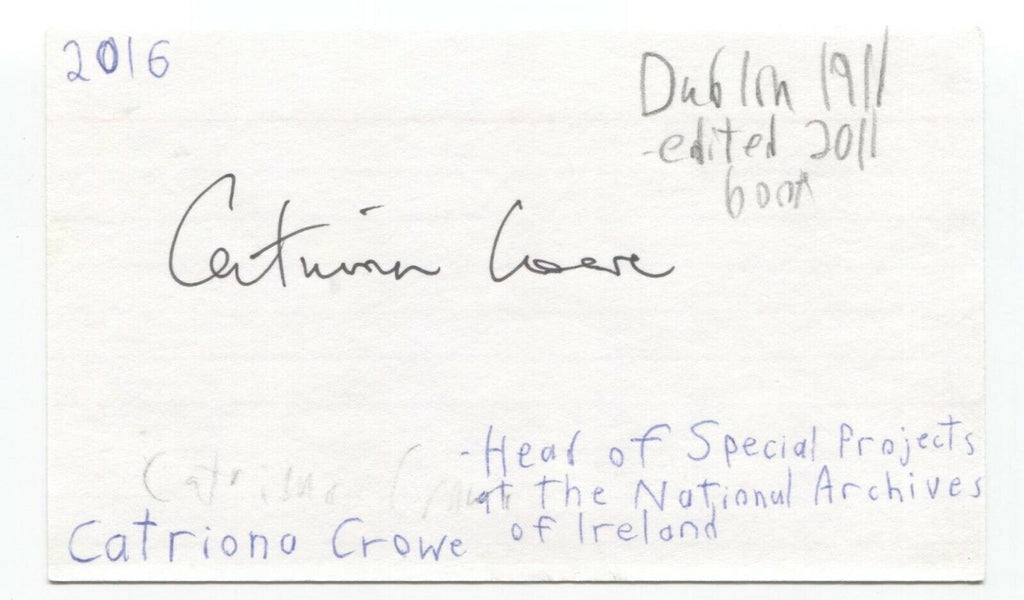 2016
Dublin 1911
-edited 2011
book
Catriona Crowe
Catriona Crowe
-Head of Special Projects
at the National Archives
of Ireland
Catriona Crowe